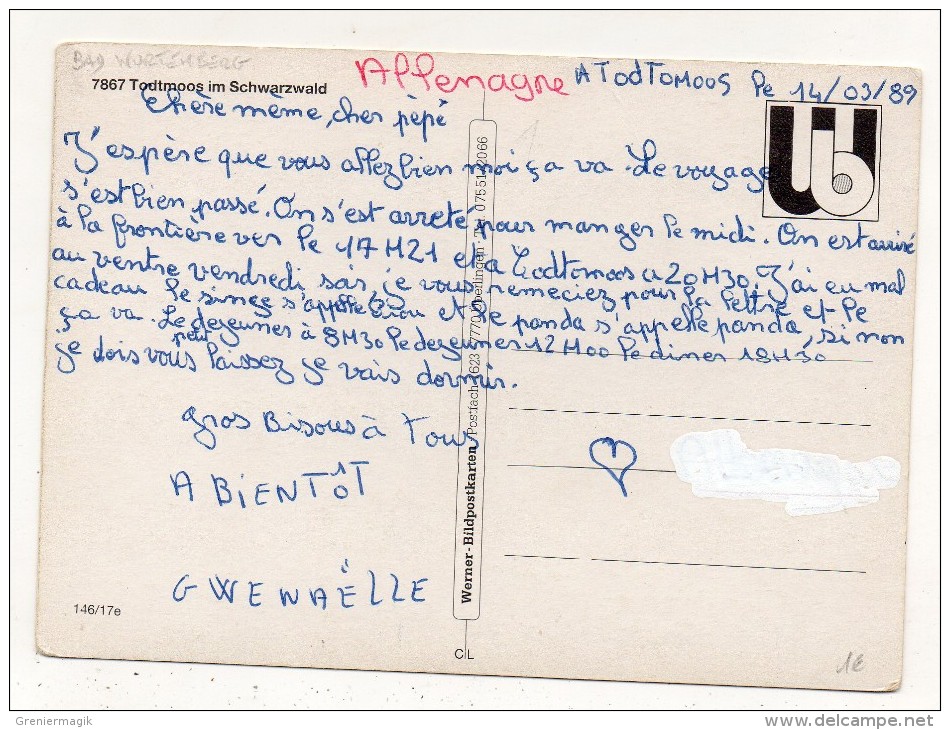 BAD WURTEMBERG
7867 Todtmoos im Schwarzwald
Allemagne
A TodTOMOOS le 14/03/89
Chère mème, cher pèpé
J'espère que vous allez bien moi ça va. Le voyage
s'est bien passé. On s'est arreté pour manger le midi. On est arrivé
à la frontière ver le 17H21 et à Todtomoos a 20H30. J'ai eu mal
au ventre vendredi soir, je vous remeciez pour la lettre et le
cadeau le singe s'appelle et le panda s'appelle panda, si non
ça va. Le petit dejeunes à 8H30 le dejeunes 12H00 le dines 18H30
je dois vous laissez je vais dormir.
gros Bisous à tous
A BIENTÔT
GWENAËLLE
Werner-Bildpostkarten · Postfach 1623 · 7770 Überlingen · Tel. 07551/2066
146/17e
CL
1€
Greniermagik
www.delcampe.net